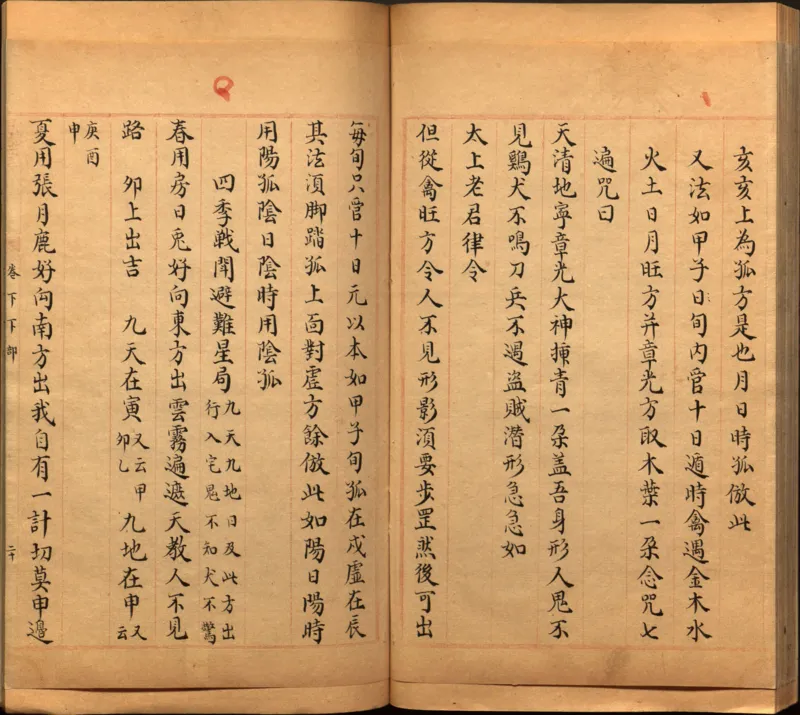 亥亥上為孤方是也月日時孤倣此
又法如甲子日旬內管十日遁時禽遇金木水
火土日月旺方并章光方取木葉一朶念咒七
遍咒曰
天清地寧章光大神揀青一朶盖吾身形人鬼不
見鷄犬不鳴刀兵不遇盜賊潛形急急如
太上老君律令
但從禽旺方令人不見形影須要步罡然後可出
每旬只管十日元以本如甲子旬狐在戌虛在辰
其法須脚踏狐上面對虛方餘倣此如陽日陽時
用陽狐陰日陰時用陰狐
四季戰鬪避難星局九天九地日及此方出行入宅鬼不知犬不驚
春用房日兎好向東方出雲霧遍遮天教人不見
路 卯上出吉 九天在寅又云甲卯乙 九地在申又云
庚酉申
夏用張月鹿好向南方出我自有一計切莫申邊
卷下下部
二十